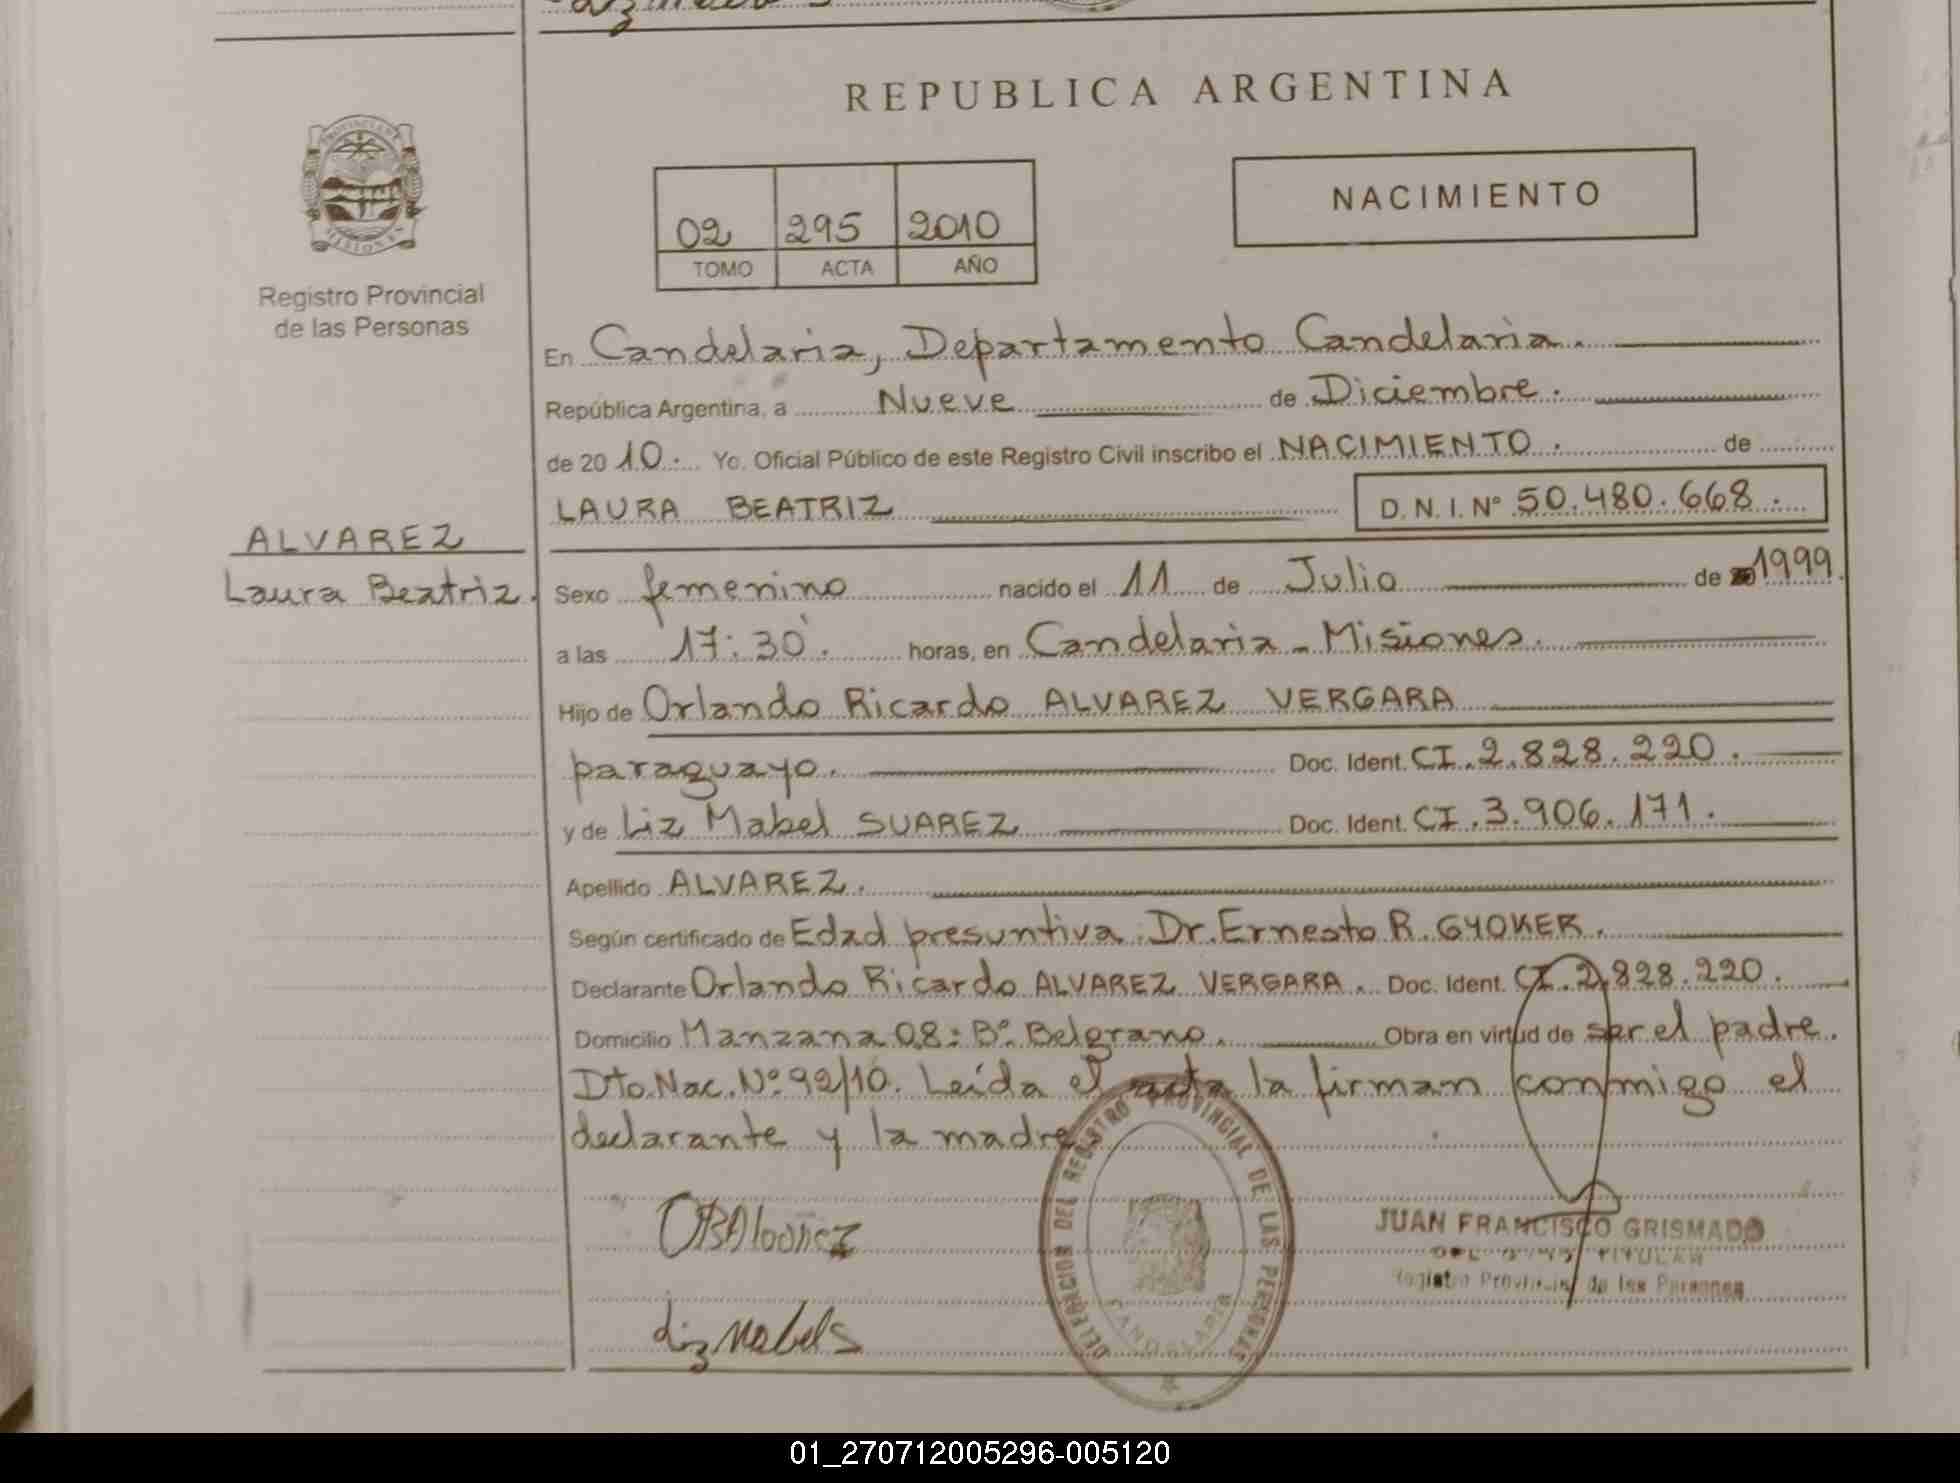 REPUBLICA ARGENTINA
PROVINCIA DE
MISIONES
Registro Provincial
de las Personas
02 295 2010
TOMO ACTA AÑO
NACIMIENTO
En Candelaria, Departamento Candelaria.
República Argentina, a Nueve de Diciembre.
de 2010. Yo. Oficial Público de este Registro Civil inscribo el NACIMIENTO. de
LAURA BEATRIZ D. N. I. Nº 50.480.668.
ALVAREZ
Laura Beatriz.
Sexo femenino nacido el 11 de Julio de 1999.
a las 17:30. horas, en Candelaria - Misiones.
Hijo de Orlando Ricardo ALVAREZ VERGARA
paraguayo. Doc. Ident. CI. 2.828.220.
y de Liz Mabel SUAREZ Doc. Ident. CI. 3.906.171.
Apellido ALVAREZ.
Según certificado de Edad presuntiva. Dr. Ernesto R. GYOKER.
Declarante Orlando Ricardo ALVAREZ VERGARA. Doc. Ident. CI. 2.828.220.
Domicilio Manzana 08: Bº Belgrano. Obra en virtud de ser el padre.
Dto. Nac. Nº 92/10. Leída el acta la firman conmigo el
declarante y la madre.
DELEGACION DEL REGISTRO PROVINCIAL DE LAS PERSONAS
CANDELARIA
JUAN FRANCISCO GRISMADO
TITULAR
Registro Provincial de las Personas
Liz Mabel S
01_270712005296-005120